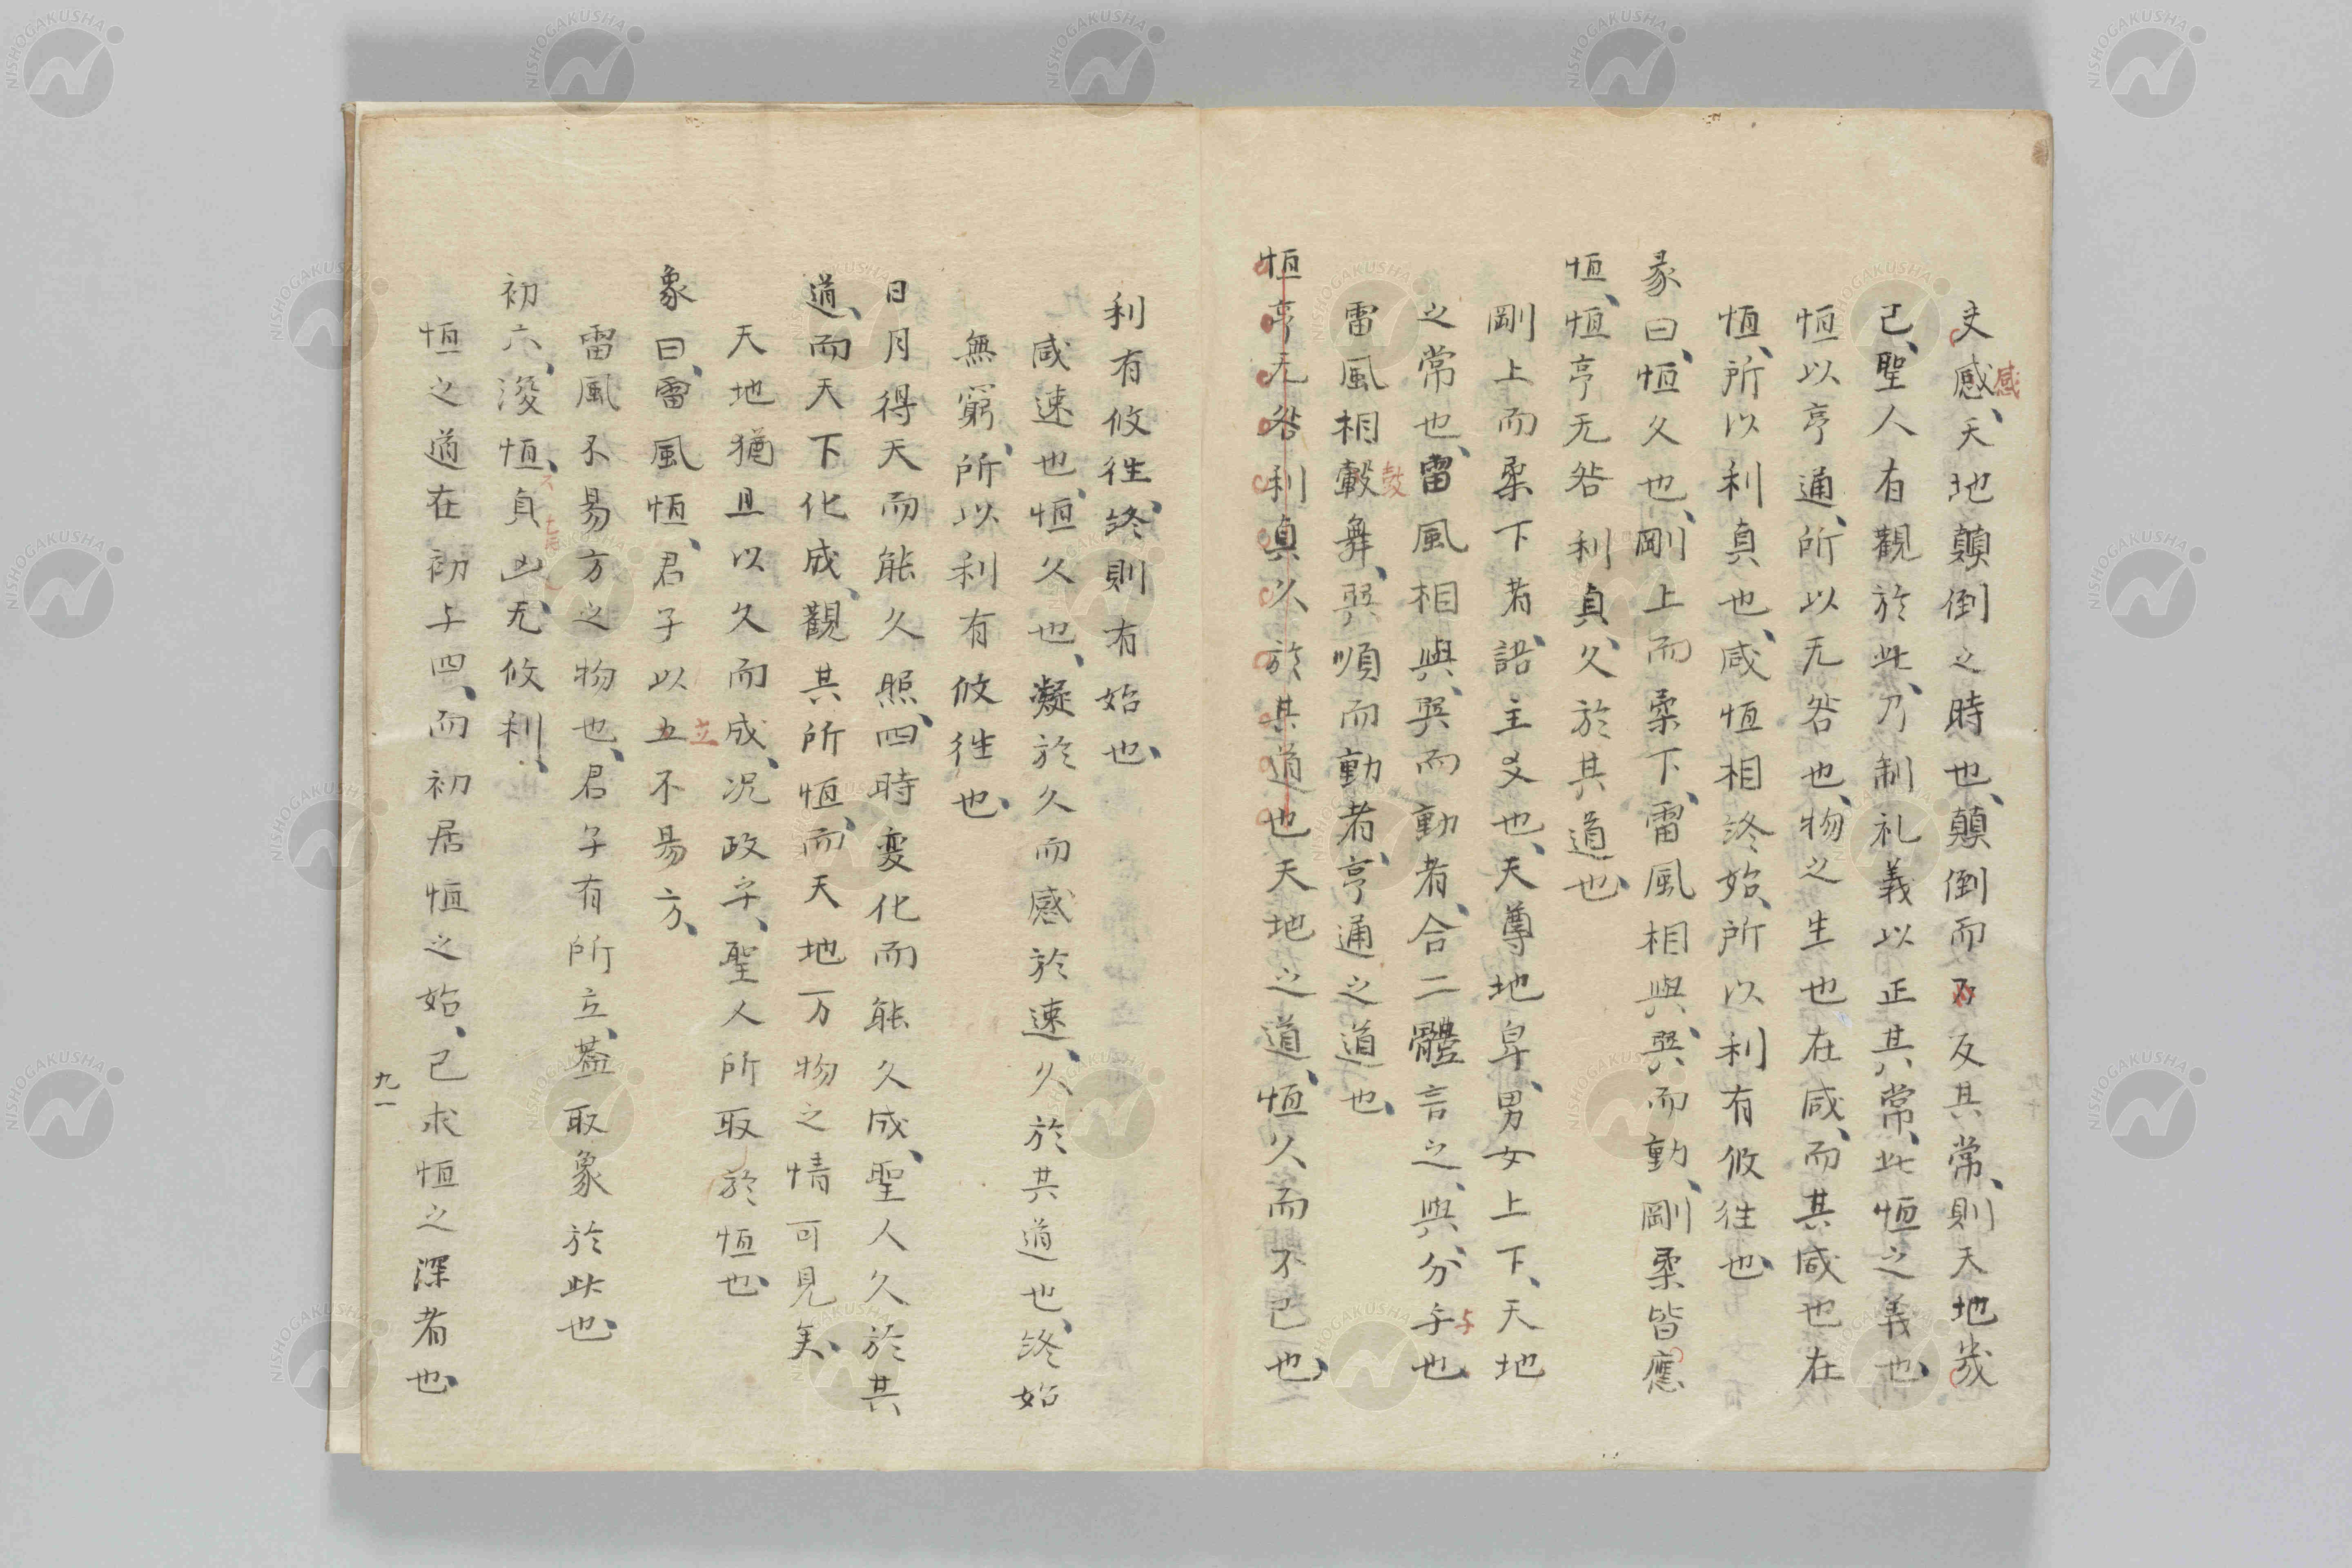 夫感、天地顛倒之時也、顛倒而及反其常、則天地幾
感
已、聖人有觀於此、乃制礼義以正其常、此恒之義也、
恒以亨通、所以无咎也、物之生也在咸、而其咸也在
恒、所以利貞也、咸恒相終始、所以利有攸往也、
彖曰、恒久也、剛上而柔下、雷風相與、巽而動、剛柔皆應
恒、恒亨无咎利貞、久於其道也、
剛上而柔下者、語主爻也、天尊地卑、男女上下、天地
之常也、雷風相與、巽而動者、合二體言之、與、分与也、
与
雷風相轂舞、巽順而動者、亨通之道也、
鼓
恒亨无咎利貞久於其道也天地之道、恒久而不已也、
利有攸往、終則有始也、
咸速也、恒久也、凝於久而感於速、久於其道也、終始
無窮、所以利有攸往也、
日月得天而能久照、四時変化而能久成、聖人久於其
道、而天下化成、觀其所恒、而天地万物之情可見矣、
天地猶且以久而成、况政乎、聖人所取於恒也、
象曰、雷風恒、君子以五不易方、
立
雷風不易方之物也、君子有所立、蓋取象於此也、
初六、浚恒、貞凶、无攸利、
恒之道在初与四、而初居恒之始、已求恒之深者也、
九一
NISHOGAKUSHA